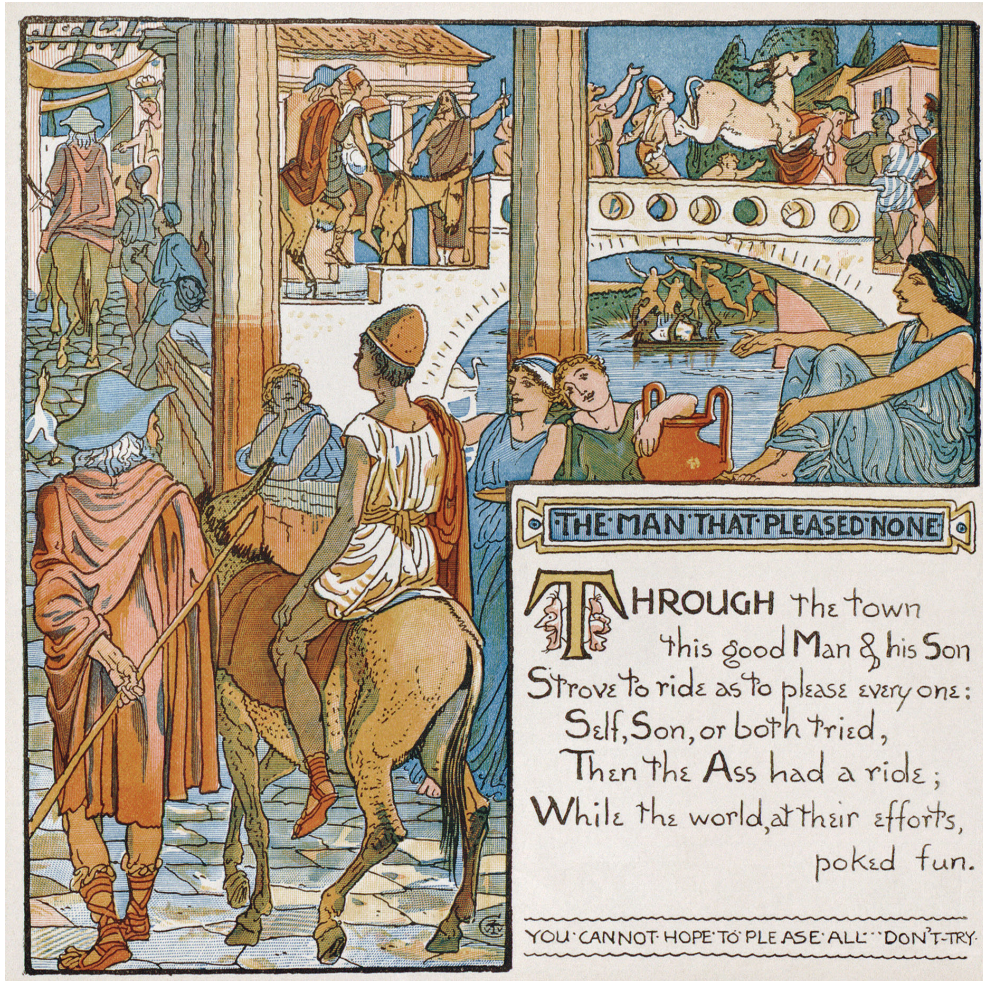 THE·MAN·THAT·PLEASED·NONE
THROUGH the town
this good Man & his Son
Strove to ride as to please every one:
Self, Son, or both tried,
Then the Ass had a ride;
While the world, at their efforts,
poked fun.
YOU·CANNOT·HOPE·TO·PLEASE·ALL···DON'T-TRY·